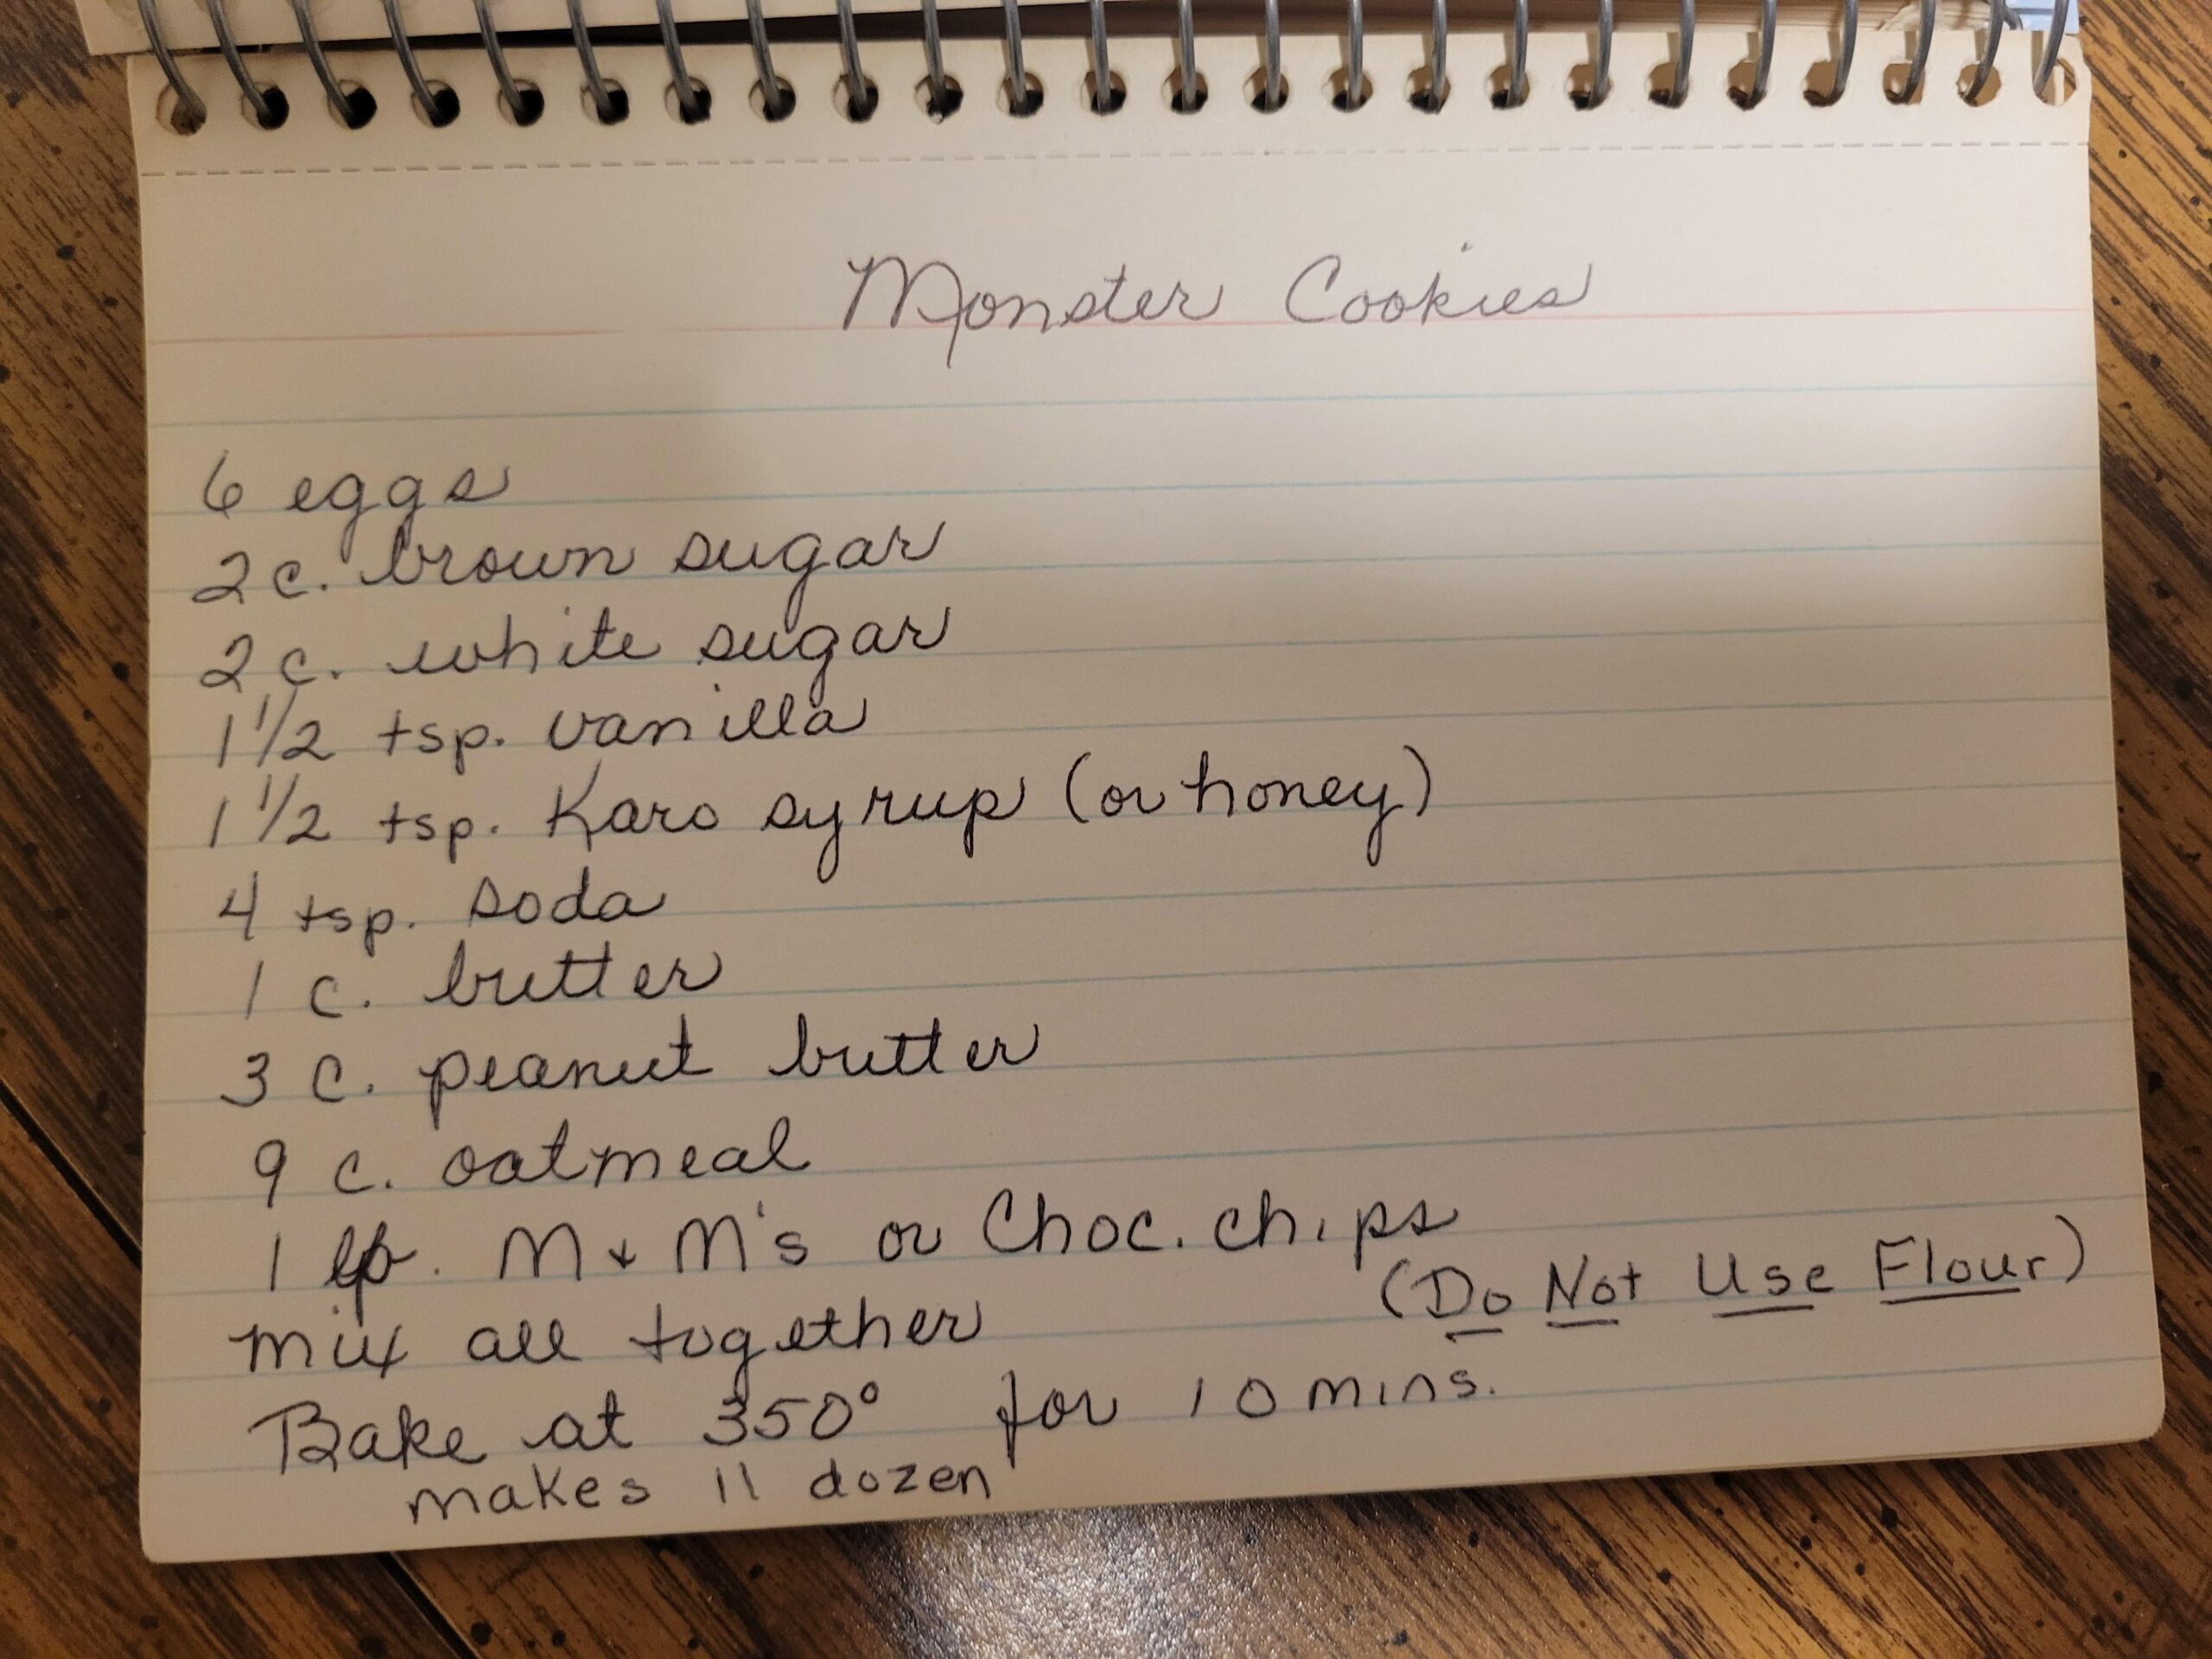 Monster Cookies
6 eggs
2 c. brown sugar
2 c. white sugar
1 1/2 tsp. vanilla
1 1/2 tsp. Karo syrup (or honey)
4 tsp. soda
1 c. butter
3 c. peanut butter
9 c. oatmeal
1 lb. M & M's or Choc. chips
(Do Not Use Flour)
mix all together
Bake at 350° for 10 mins.
makes 11 dozen